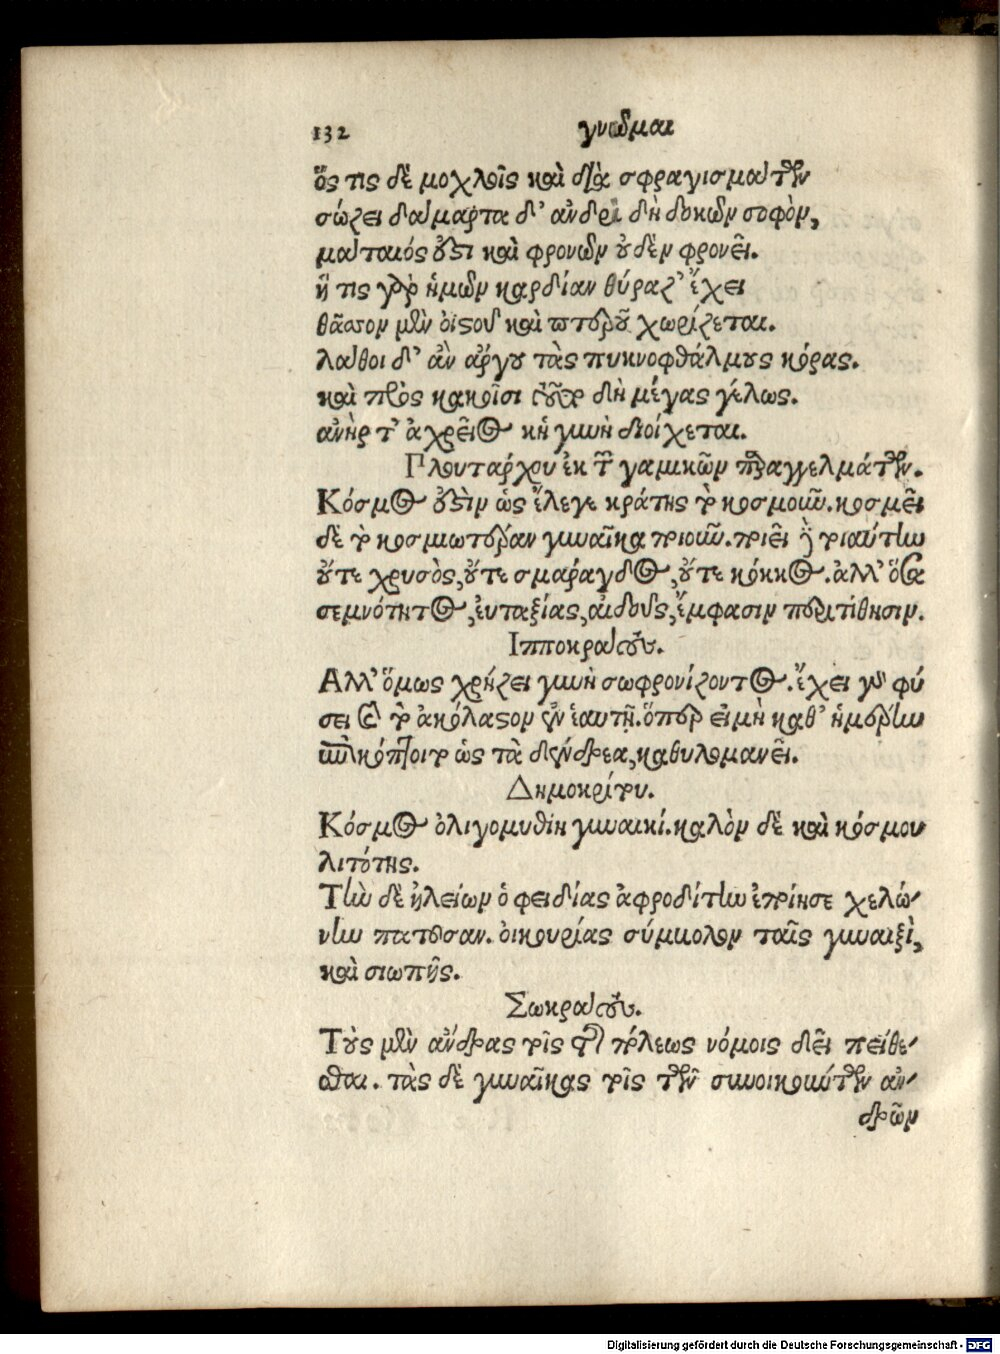 132 γνῶμαι
ὅς τις δὲ μοχλοῖς καὶ διὰ σφραγισμάτων
σώζει δάμαρτα δ' ἀνδρὶ δὴ δοκῶν σοφὸν,
μάταιός ἐστι καὶ φρονῶν οὐδὲν φρονεῖ.
ἥ τις γὰρ ἡμῶν καρδίαν θύραζ' ἔχει
θᾶσσον μὲν οἰστοῦ καὶ πτεροῦ χωρίζεται.
λάθοι δ' ἂν ἄργου τὰς πυκνοφθάλμους κόρας.
καὶ πρὸς κακοῖσι τοῦτο δὴ μέγας γέλως.
ἀνήρ τ' ἀχρεῖος κἡ γυνὴ διοίχεται.
Πλουτάρχου ἐκ τῶν γαμικῶν παραγγελμάτων.
Κόσμος ἐστὶν ὡς ἔλεγε κράτης τὸ κοσμοῦν. κοσμεῖ
δὲ τὸ κοσμιωτέραν γυναῖκα ποιοῦν. ποιεῖ δὲ τοιαύτην
οὔτε χρυσὸς, οὔτε σμάραγδος, οὔτε κόκκος. ἀλλ' ὅσα
σεμνότητος, εὐταξίας, αἰδοῦς, ἔμφασιν περιτίθησιν.
Ἱπποκράτους.
Ἀλλ' ὅμως χρήζει γυνὴ σωφρονίζοντος. ἔχει γὰρ φύ
σει τὸ ἀκόλαστον ἐν ἑαυτῇ. ὅπερ εἰ μὴ καθ' ἡμέρην
ἐπικόπτοιτο ὡς τὰ δένδρεα, καθυλομανεῖ.
Δημοκρίτου.
Κόσμος ὀλιγομυθίη γυναικί. καλὸν δὲ καὶ κόσμου
λιτότης.
Τὴν δὲ ἠλείων ὁ φειδίας ἀφροδίτην ἐποίησε χελώ-
νην πατοῦσαν. οἰκουρίας σύμβολον ταῖς γυναιξὶ,
καὶ σιωπῆς.
Σωκράτους.
Τοὺς μὲν ἄνδρας τοῖς τῆς πόλεως νόμοις δεῖ πείθε-
σθαι. τὰς δὲ γυναῖκας τοῖς τῶν συνοικούντων ἀν-
δρῶν
Digitalisierung gefördert durch die Deutsche Forschungsgemeinschaft - DFG